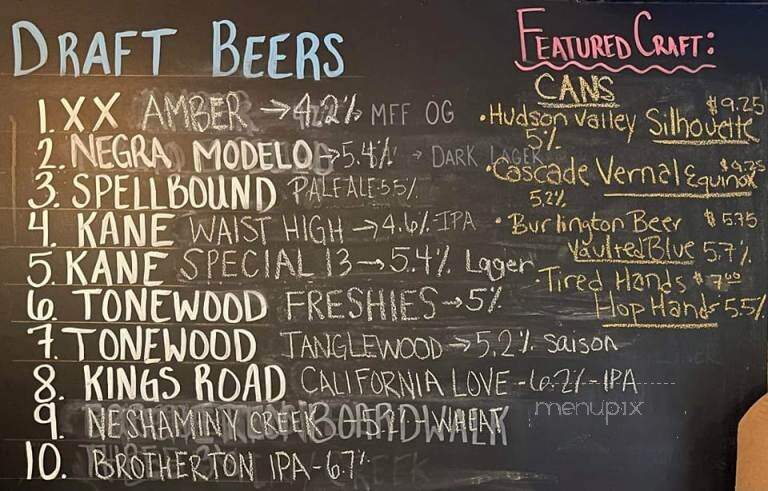 DRAFT BEERS
1. XX AMBER → 4.2% MFF OG
2. NEGRA MODELO → 5.4% → DARK LAGER
3. SPELLBOUND PALE ALE 5.5%
4. KANE WAIST HIGH → 4.6% IPA
5. KANE SPECIAL 13 → 5.4% Lager
6. TONEWOOD FRESHIES → 5%
7. TONEWOOD TANGLEWOOD → 5.2% Saison
8. KINGS ROAD CALIFORNIA LOVE - 6.2% - IPA
9. NESHAMINY CREEK BOARDWALK WHEAT
10. BROTHERTON IPA - 6.7%
FEATURED CRAFT:
CANS
$9.25
• Hudson Valley Silhouette
5%
$9.75
• Cascade Vernal Equinox
5.2%
• Burlington Beer $5.75
Vaulted Blue 5.7%
• Tired Hands $7.00
Hop Hands 5.5%
menupix